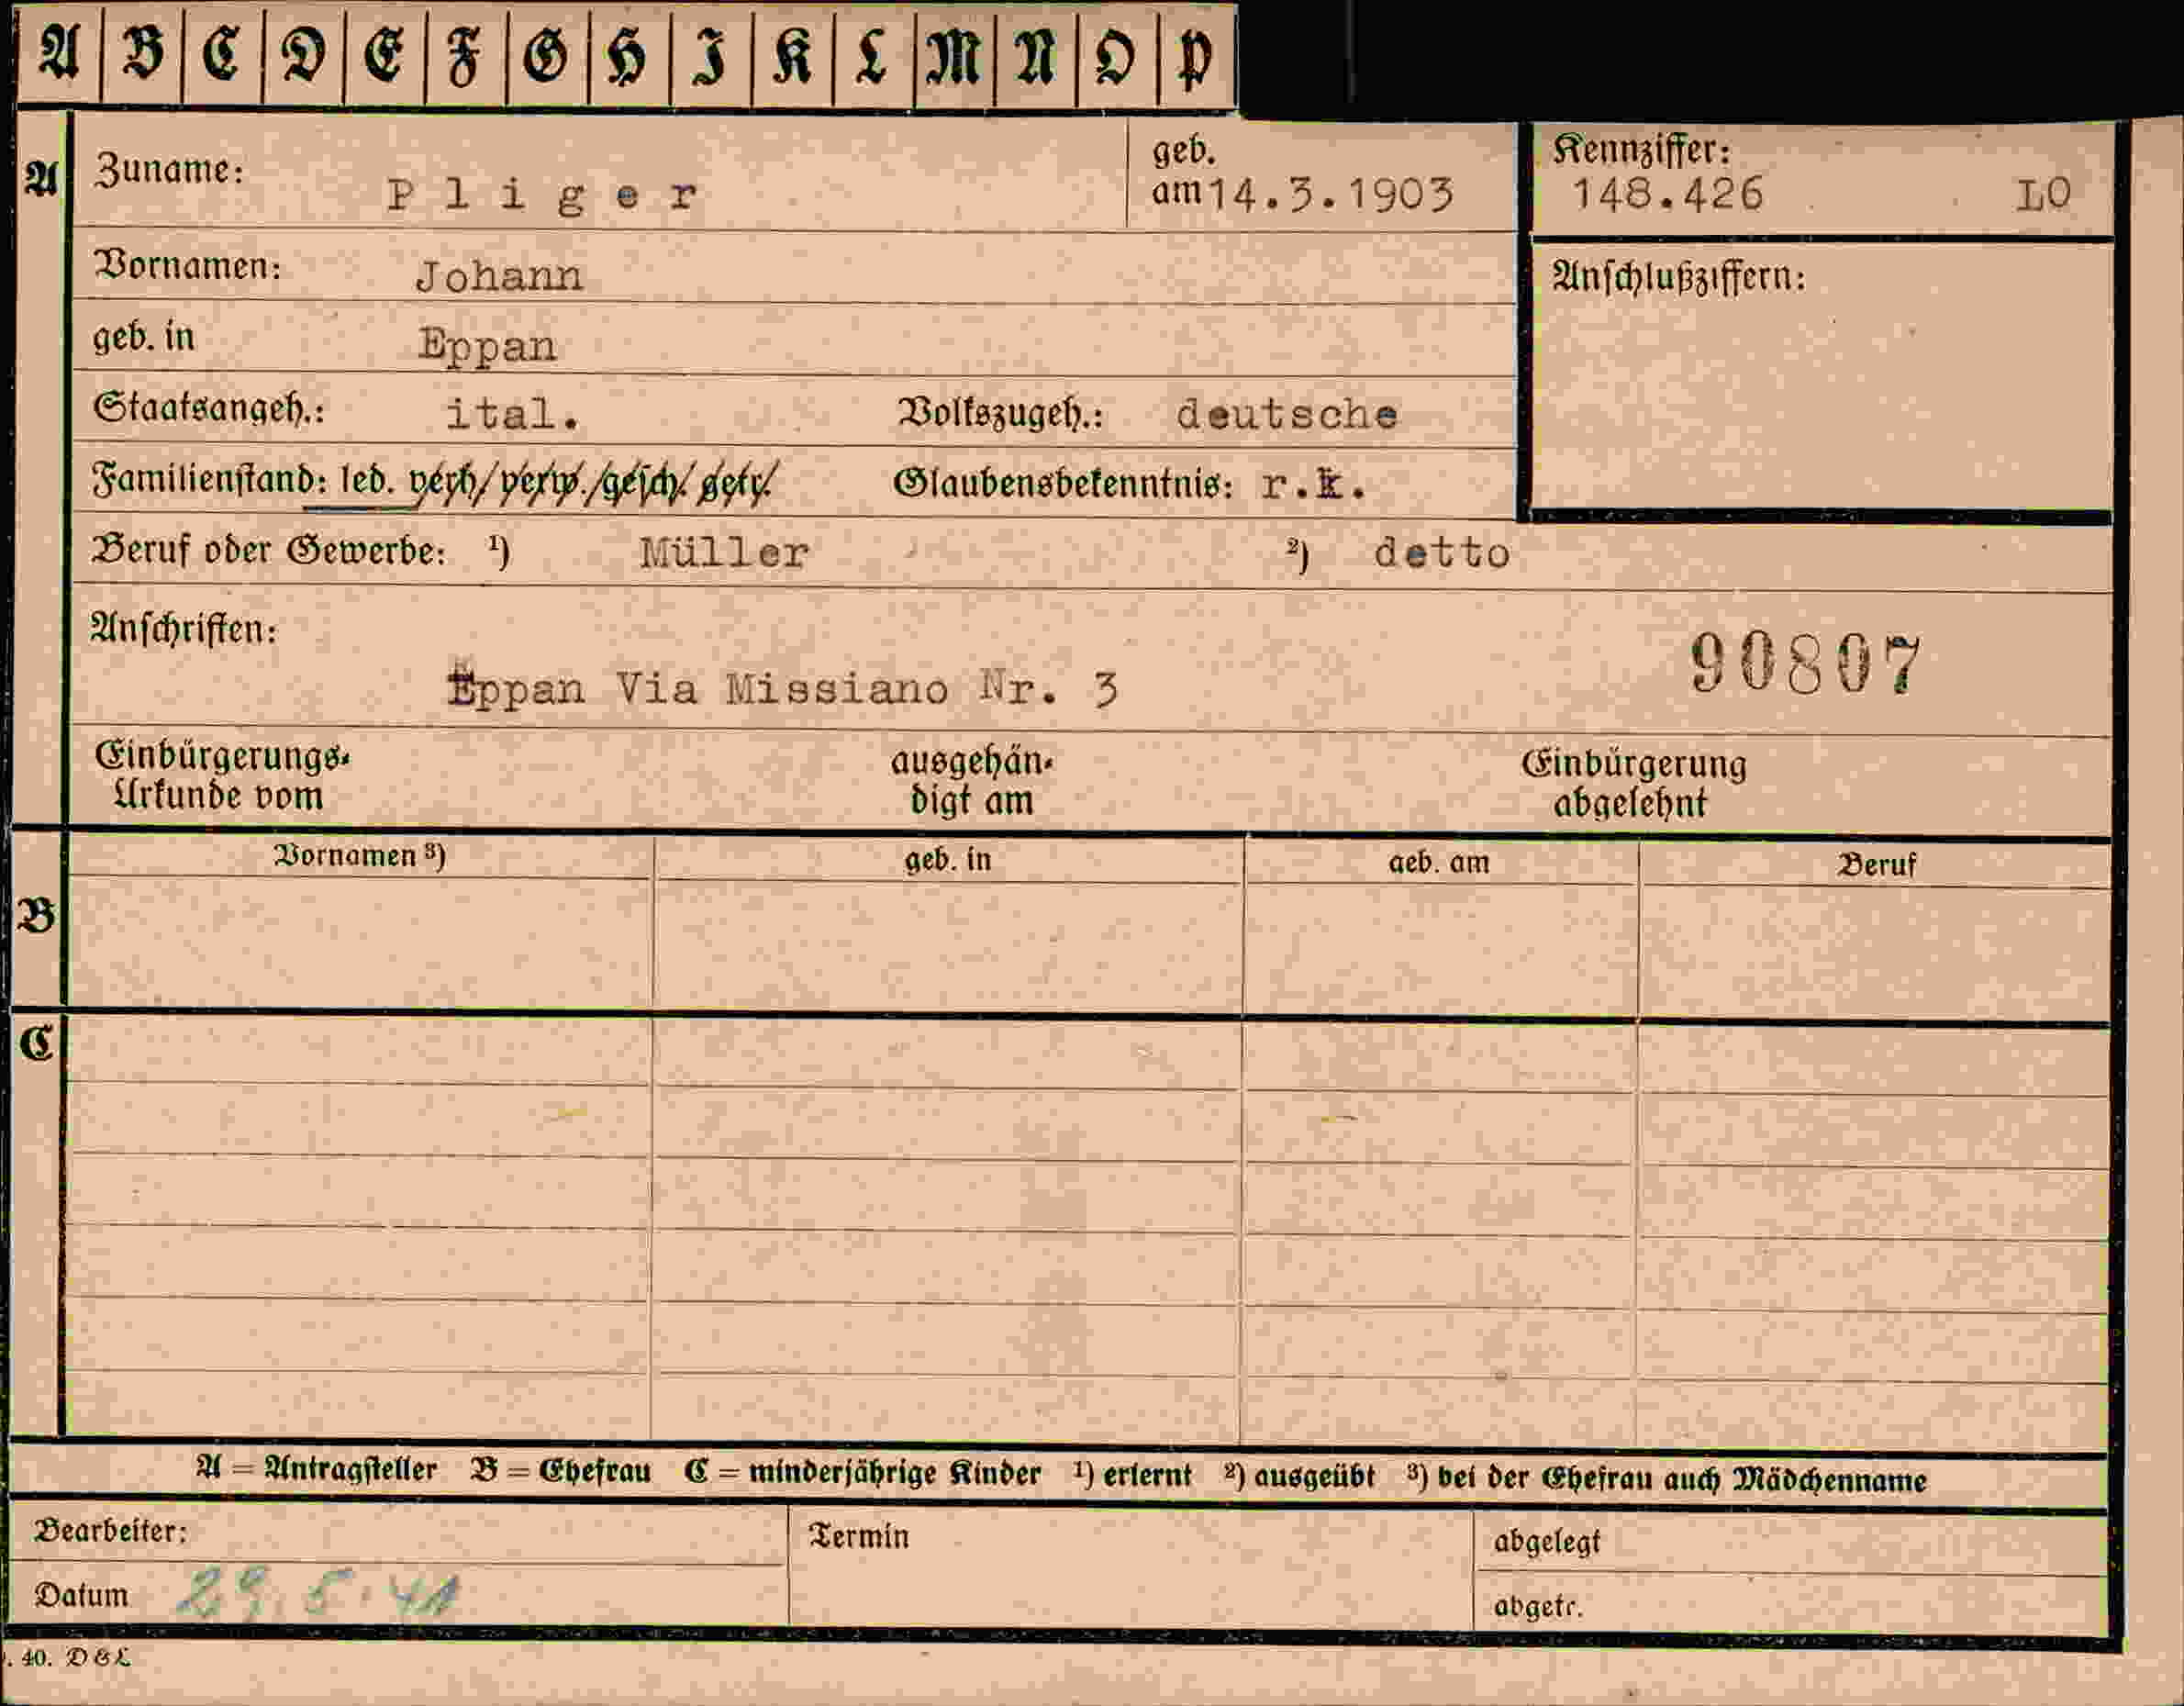 A B C D E F G H I K L M N O P
A Zuname: Pliger geb. am 14.3.1903 Kennziffer: 148.426 LO
Vornamen: Johann Anschlußziffern:
geb. in Eppan
Staatsangeh.: ital. Volkszugeh.: deutsche
Familienstand: led. verh. verw. gesch. getr. Glaubensbekenntnis: r.k.
Beruf oder Gewerbe: ¹) Müller ²) detto
Anschriften:
90807
Eppan Via Missiano Nr. 3
Einbürgerungs- ausgehän- Einbürgerung
Urkunde vom digt am abgelehnt
Vornamen ³) geb. in geb. am Beruf
B
C
A = Antragsteller B = Ehefrau C = minderjährige Kinder ¹) erlernt ²) ausgeübt ³) bei der Ehefrau auch Mädchenname
Bearbeiter: Termin abgelegt
Datum 29.5.41 abgetr.
. 40. D & L